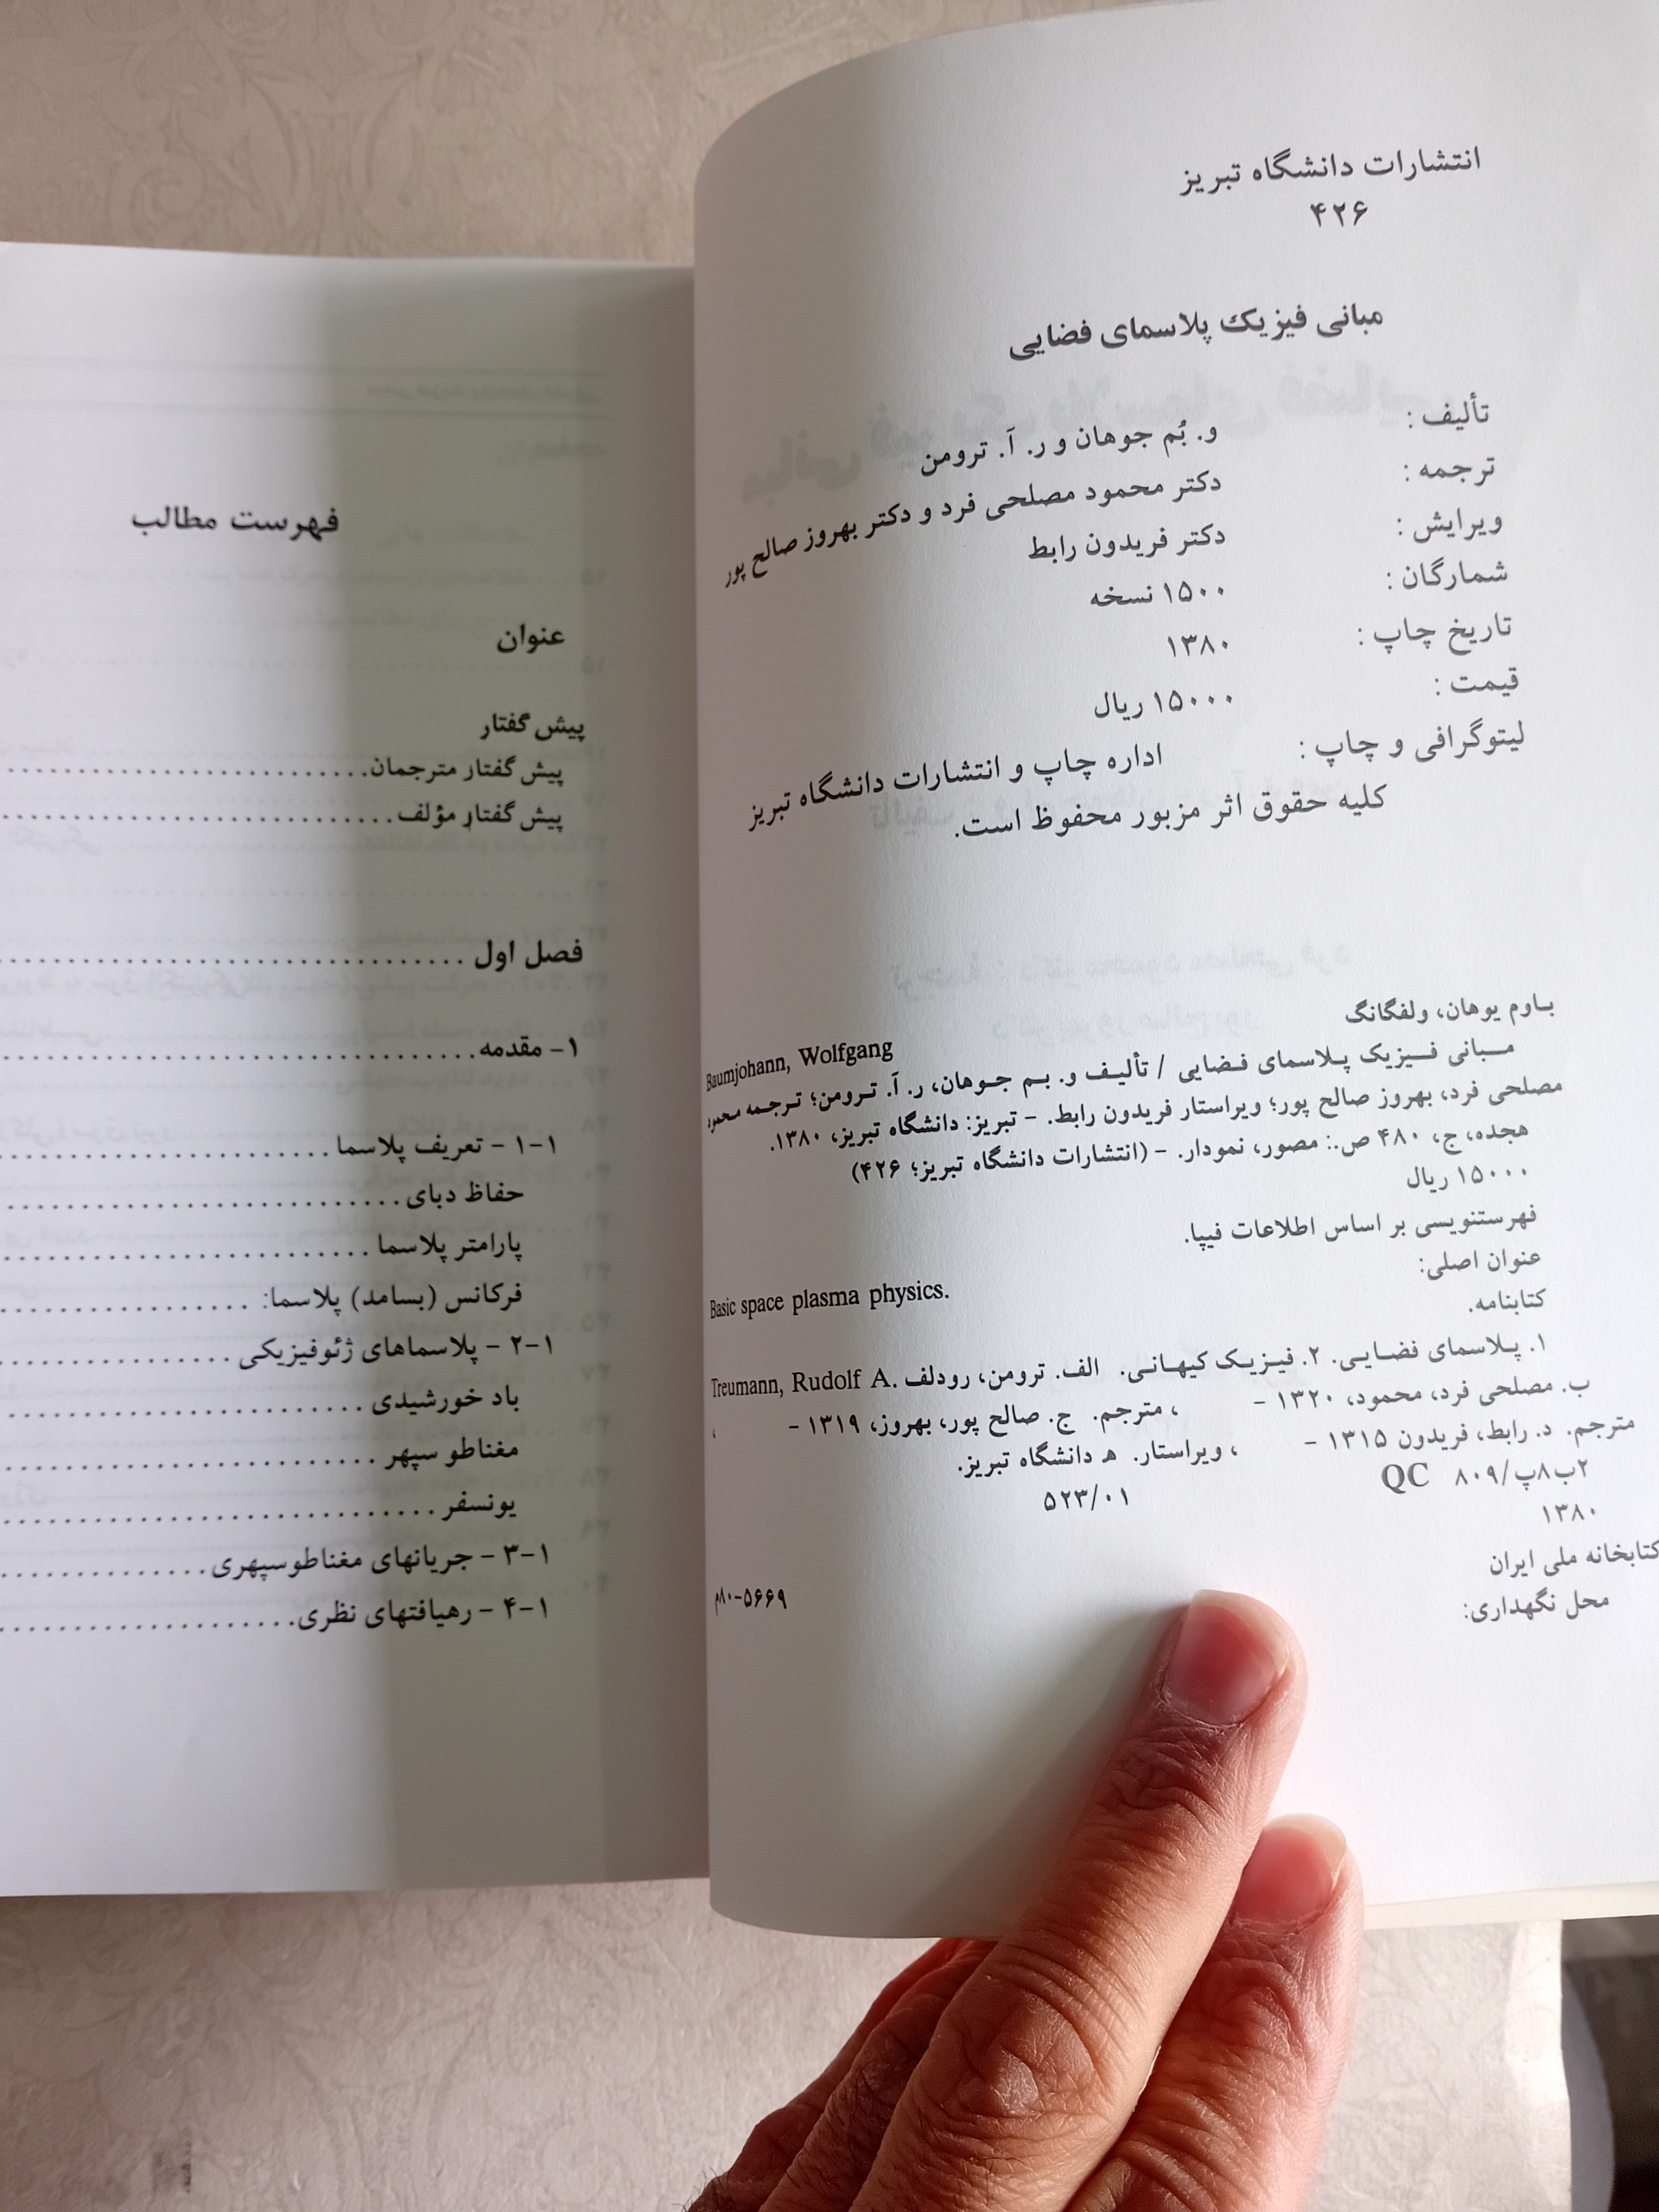 انتشارات دانشگاه تبریز
۴۲۶
مبانی فیزیک پلاسمای فضایی
تألیف : و. بُم جوهان و ر. آ. ترومن
ترجمه : دکتر محمود مصلحی فرد و دکتر بهروز صالح پور
ویرایش : دکتر فریدون رابط
شمارگان : ۱۵۰۰ نسخه
تاریخ چاپ : ۱۳۸۰
قیمت : ۱۵۰۰۰ ریال
لیتوگرافی و چاپ : اداره چاپ و انتشارات دانشگاه تبریز
کلیه حقوق اثر مزبور محفوظ است.
باوم یوهان، ولفگانگ Baumjohann, Wolfgang
مبانی فیزیک پلاسمای فضایی / تألیف و. بم جوهان، ر. آ. ترومن؛ ترجمه محمود
مصلحی فرد، بهروز صالح پور؛ ویراستار فریدون رابط. - تبریز: دانشگاه تبریز، ۱۳۸۰.
هجده، ج، ۴۸۰ ص.: مصور، نمودار. - (انتشارات دانشگاه تبریز؛ ۴۲۶)
۱۵۰۰۰ ریال
فهرستنویسی بر اساس اطلاعات فیپا.
عنوان اصلی: Basic space plasma physics.
کتابنامه.
۱. پلاسمای فضایی. ۲. فیزیک کیهانی. الف. ترومن، رودلف Treumann, Rudolf A.
ب. مصلحی فرد، محمود، ۱۳۲۰ - ، مترجم. ج. صالح پور، بهروز، ۱۳۱۹ - ،
مترجم. د. رابط، فریدون ۱۳۱۵ - ، ویراستار. ه دانشگاه تبریز.
۲ب۸پ/۸۰۹ QC ۵۲۳/۰۱
۱۳۸۰
کتابخانه ملی ایران ۵۶۶۹-۸۰م
محل نگهداری:
فهرست مطالب
عنوان
پیش گفتار
پیش گفتار مترجمان
پیش گفتار مؤلف
فصل اول
۱- مقدمه
۱-۱ - تعریف پلاسما
حفاظ دبای
پارامتر پلاسما
فرکانس (بسامد) پلاسما:
۱-۲ - پلاسماهای ژئوفیزیکی
باد خورشیدی
مغناطو سپهر
یونسفر
۱-۳ - جریانهای مغناطوسپهری
۱-۴ - رهیافتهای نظری